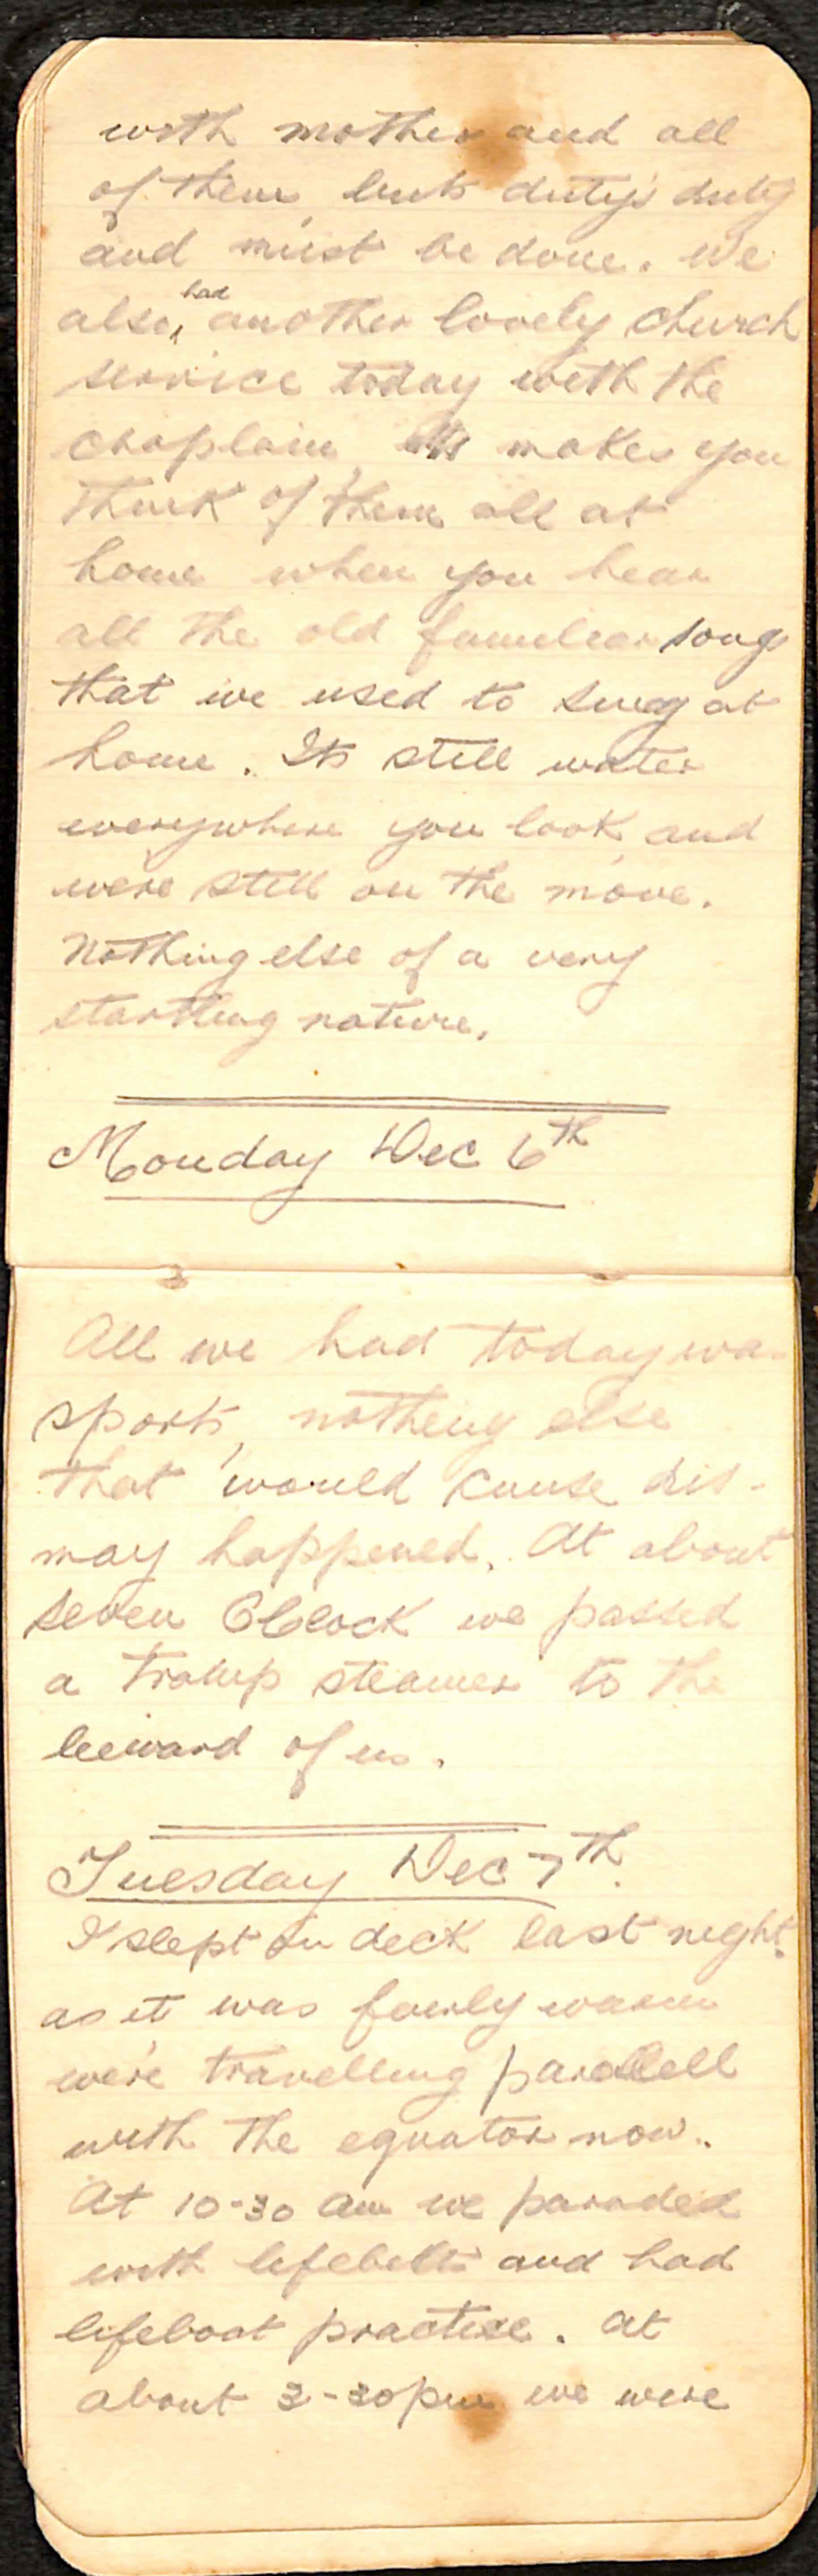 with mother and all
of them, but duty's duty
and must be done. We
also had another lovely church
service today with the
chaplain, makes you
think of them all at
home when you hear
all the old familiar songs
that we used to sing at
home. Its still water
everywhere you look and
we're still on the move.
Nothing else of a very
startling nature.
Monday Dec 6th
All we had today was
sports, nothing else
that would cause dis-
may happened. At about
seven OClock we passed
a tramp steamer to the
leeward of us.
Tuesday Dec 7th.
I slept on deck last night
as it was fairly warm
we're travelling parallell
with the equator now.
At 10-30 am we paraded
with lifebelts and had
lifeboat practise. At
about 3-30pm we were